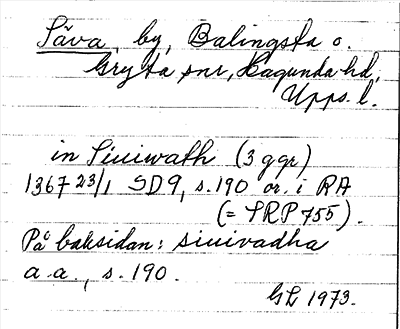 Säva, by, Balingsta o.
Gryta snr, Hagunda hd,
Upps. l.
in Siuiwath (3 ggr)
1367 23/1 SD9, s. 190 or. i RA
(= SRP 755).
På baksidan: siuivadha
a.a., s. 190.
GL 1973.